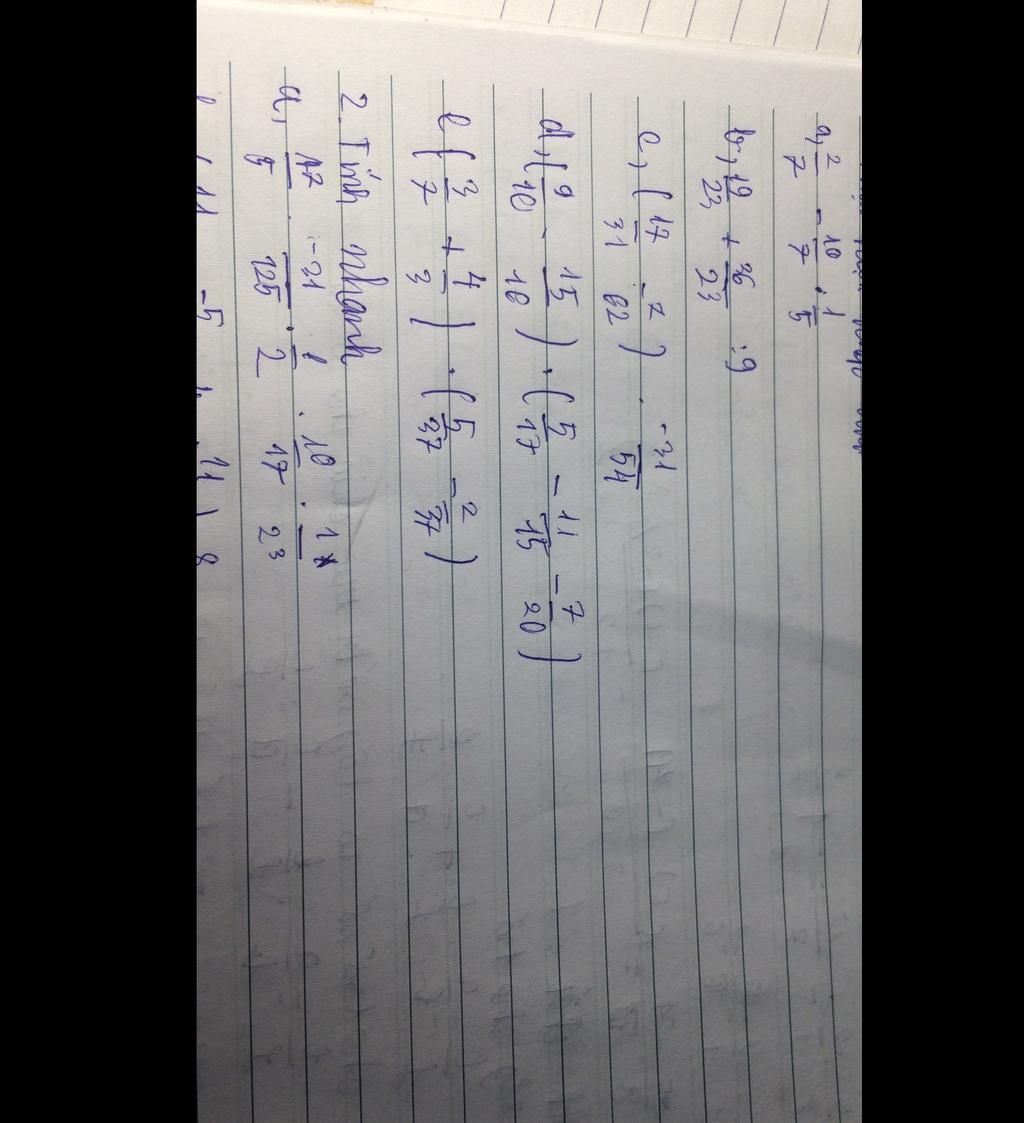 a, 2/7 - 10/7 . 1/5
b, 19/23 + 36/23 : 9
c, ( 17/31 7/62 ) . -31/54
d, ( 9/10 - 15/16 ) . ( 5/17 - 11/15 - 7/20 )
e ( 3/7 + 4/3 ) . ( 5/37 - 2/37 )
2. Tính nhanh
a, 17/5 . -31/125 . 1/2 . 10/17 . 1/2³
( 11 -5 11 ) 8